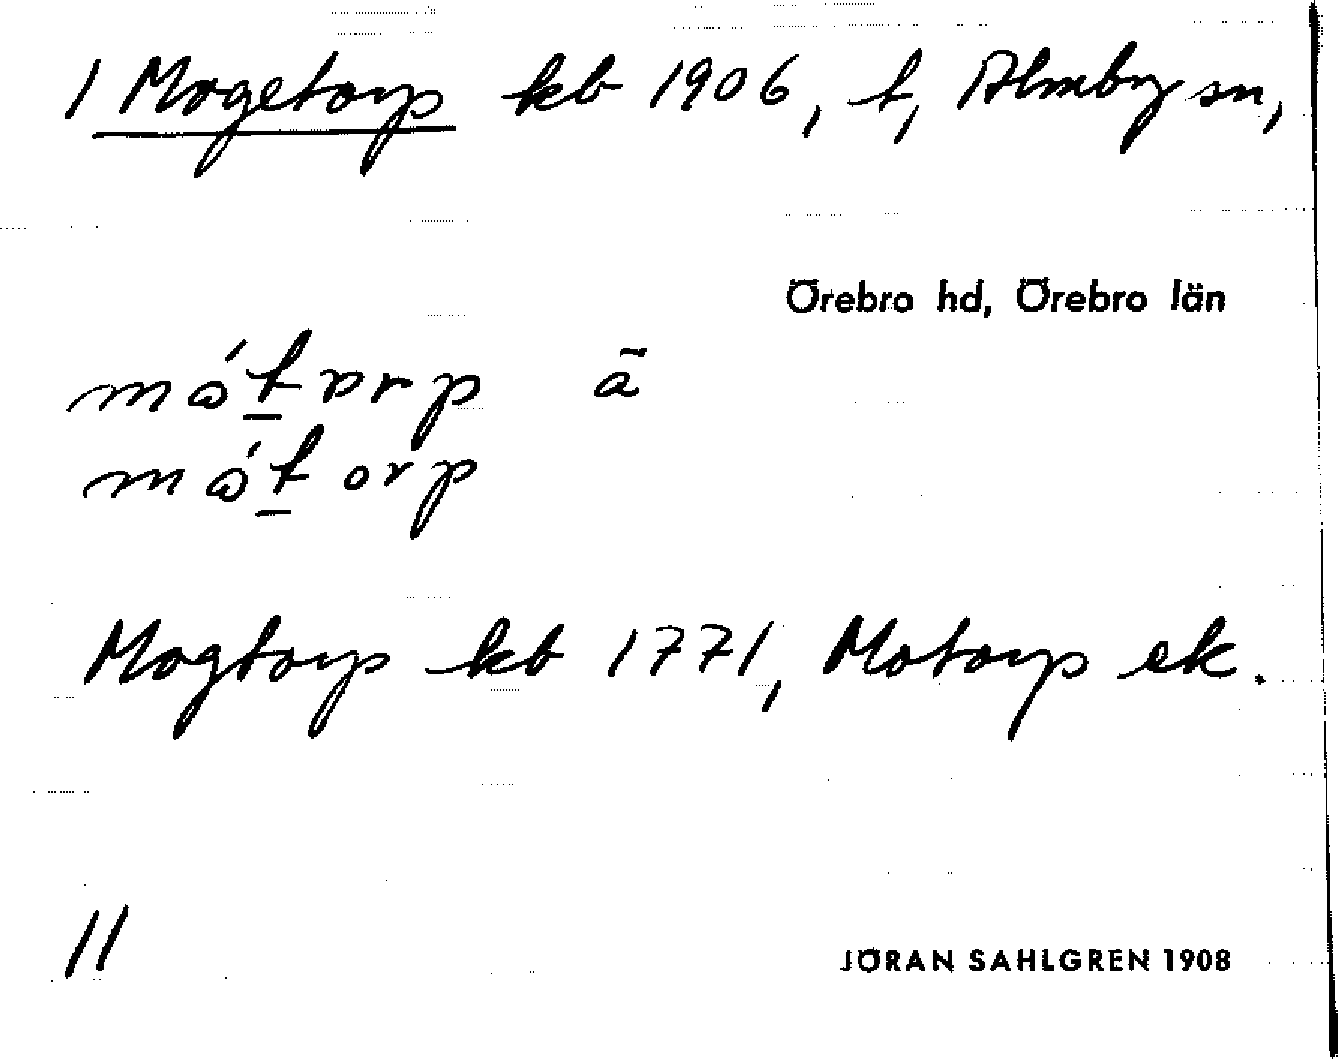 1 Mogetorp kb 1906, t, Almby sn,
Örebro hd, Örebro län
mótorp ã
mótorp
Mogtorp kb 1771, Motorp ek.
11
JÖRAN SAHLGREN 1908